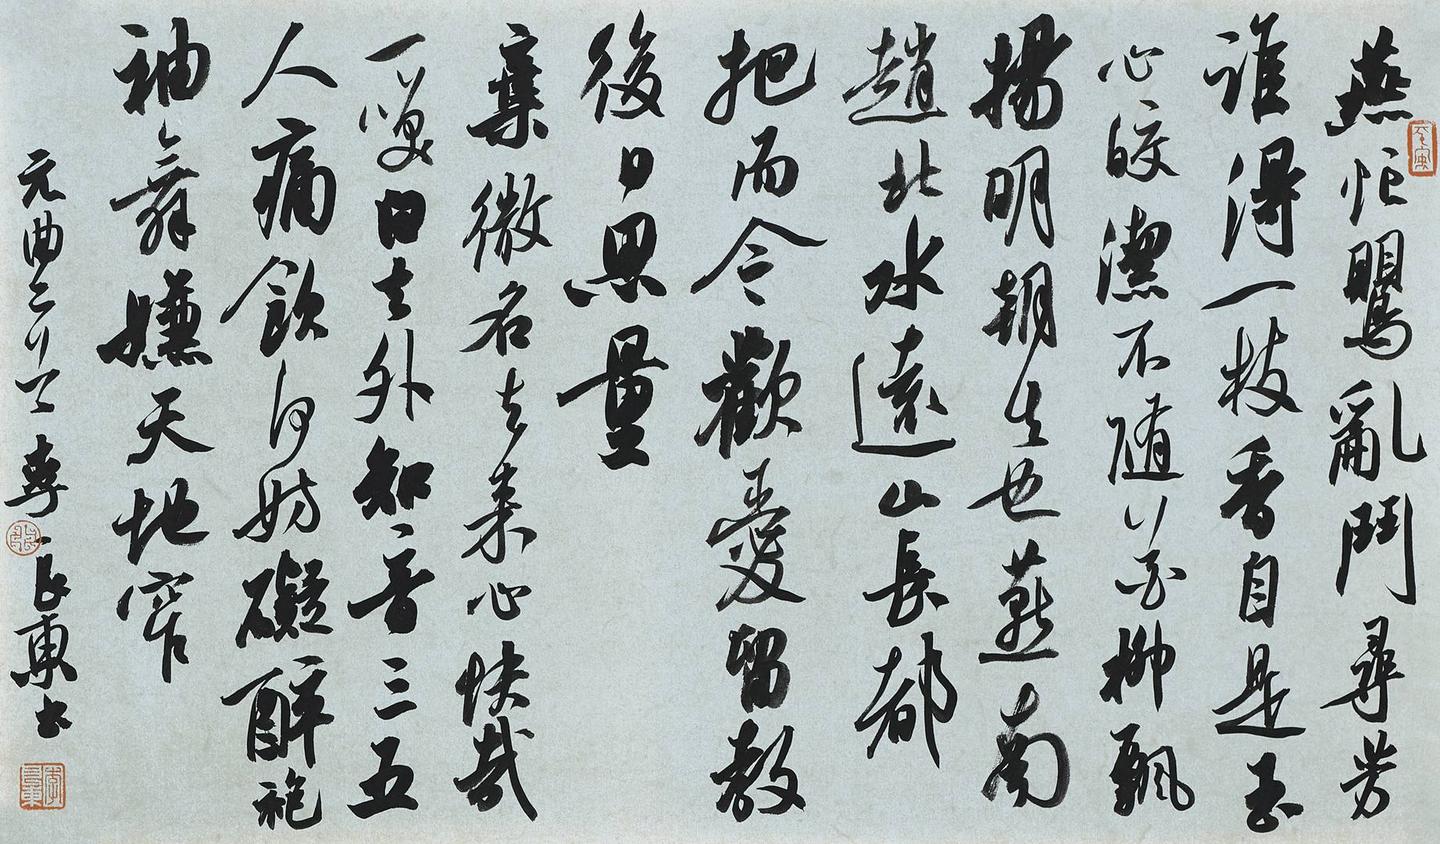 燕忙鸎亂鬥尋芳
誰得一枝香自是玉
心皎潔不隨花柳飄
揚明朝去也燕南
趙北水遠山長都
把而今歡愛留教
後日思量
棄微名去來心快哉
一笑白雲外知音三五
人痛飲何妨礙醉袍
袖舞嫌天地窄
元曲二首 李東書